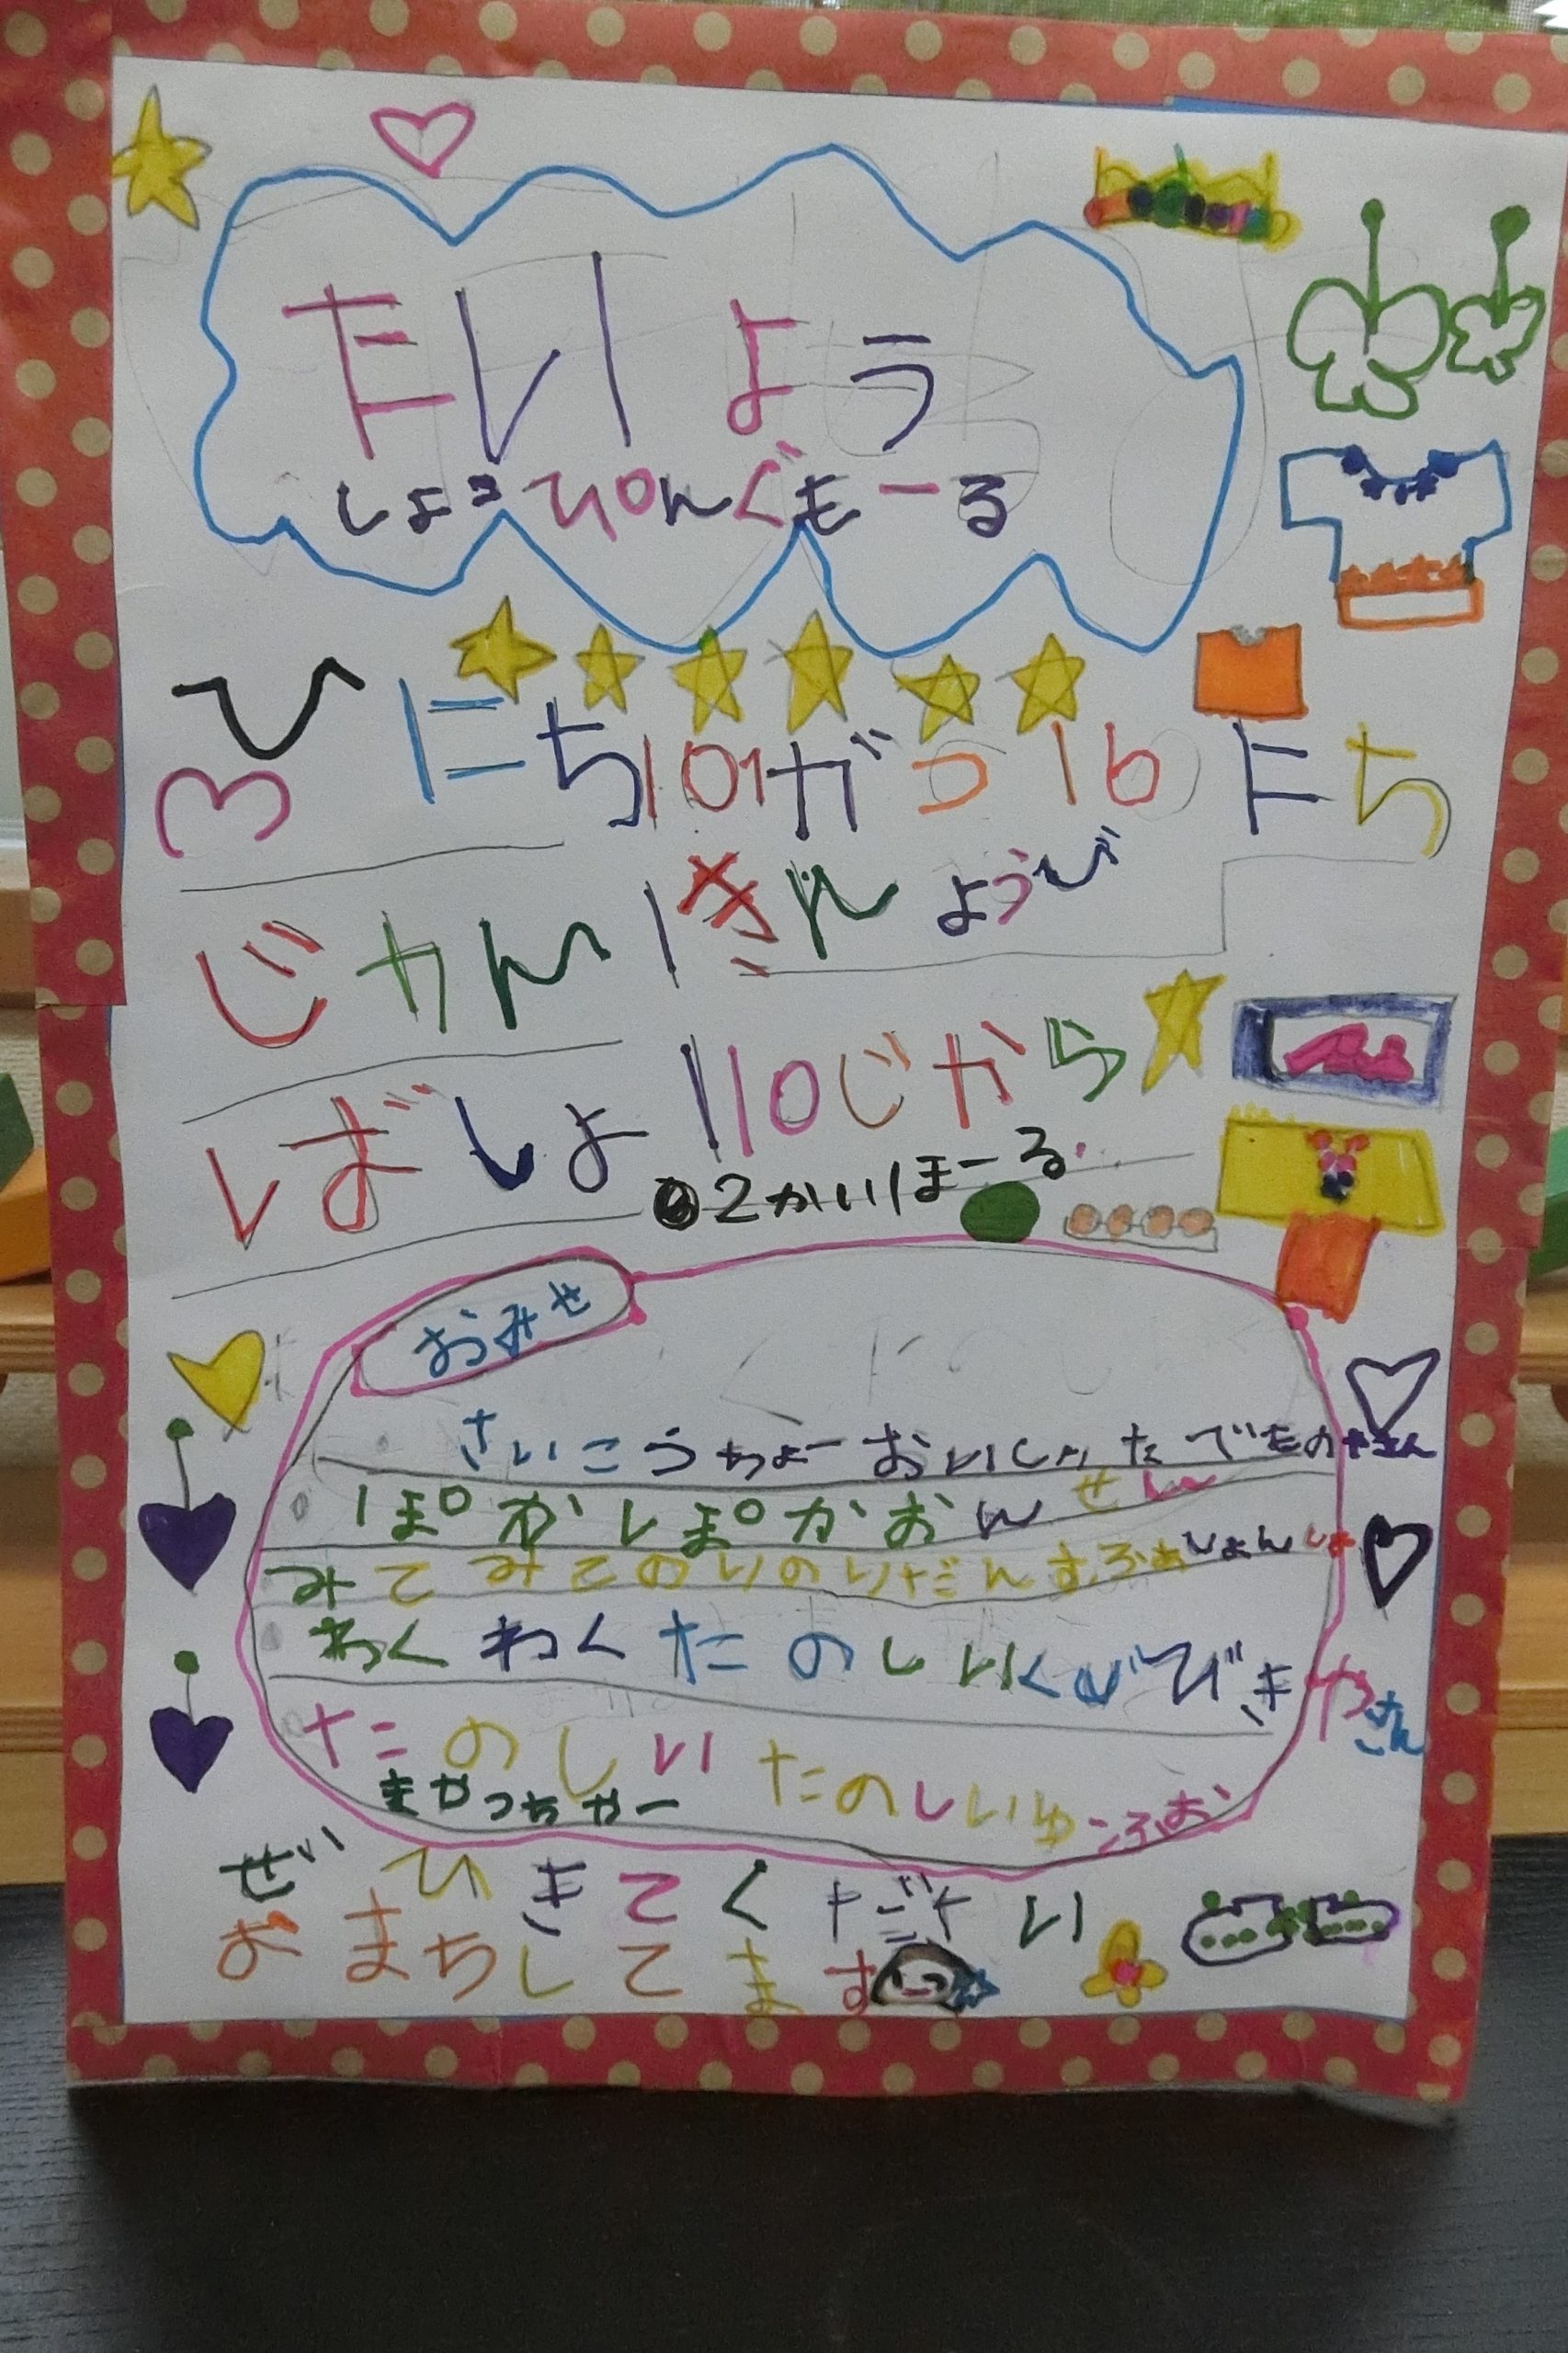 たいよう
しょっぴんぐもーる
ひにち 10がつ16
きんようび
じかん 10じから
ばしょ 2かいほーる
おみせ
さいこうちょーおいしい たべものやさん
ぽかぽかおんせん
みてみてのりのりだんすふぁしょんしょー
わくわくたのしいくびびきやさん
たのしい たのしいゆーふぉー
きゃっちゃー
ぜひきてください
おまちしてます